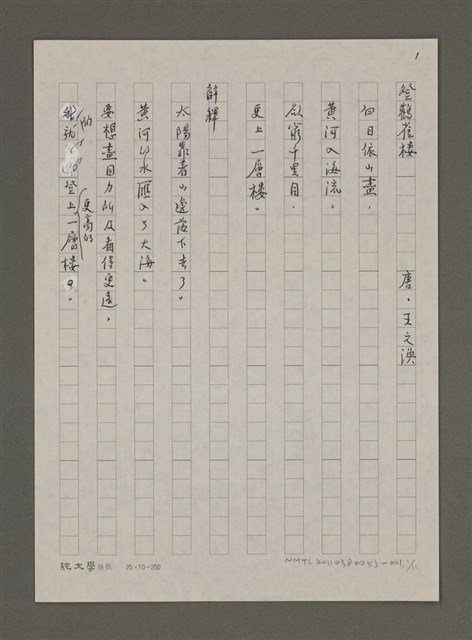 1
登鸛雀樓 唐。王之渙
白日依山盡,
黃河入海流。
欲窮千里目,
更上一層樓。
解釋
太陽靠著山邊落下去了。
黃河的水匯入了大海。
要想盡目力所及看得更遠。
的
就 登上一層樓。
更高的
純文學稿紙 25×10=250
NMTL20110380053-001